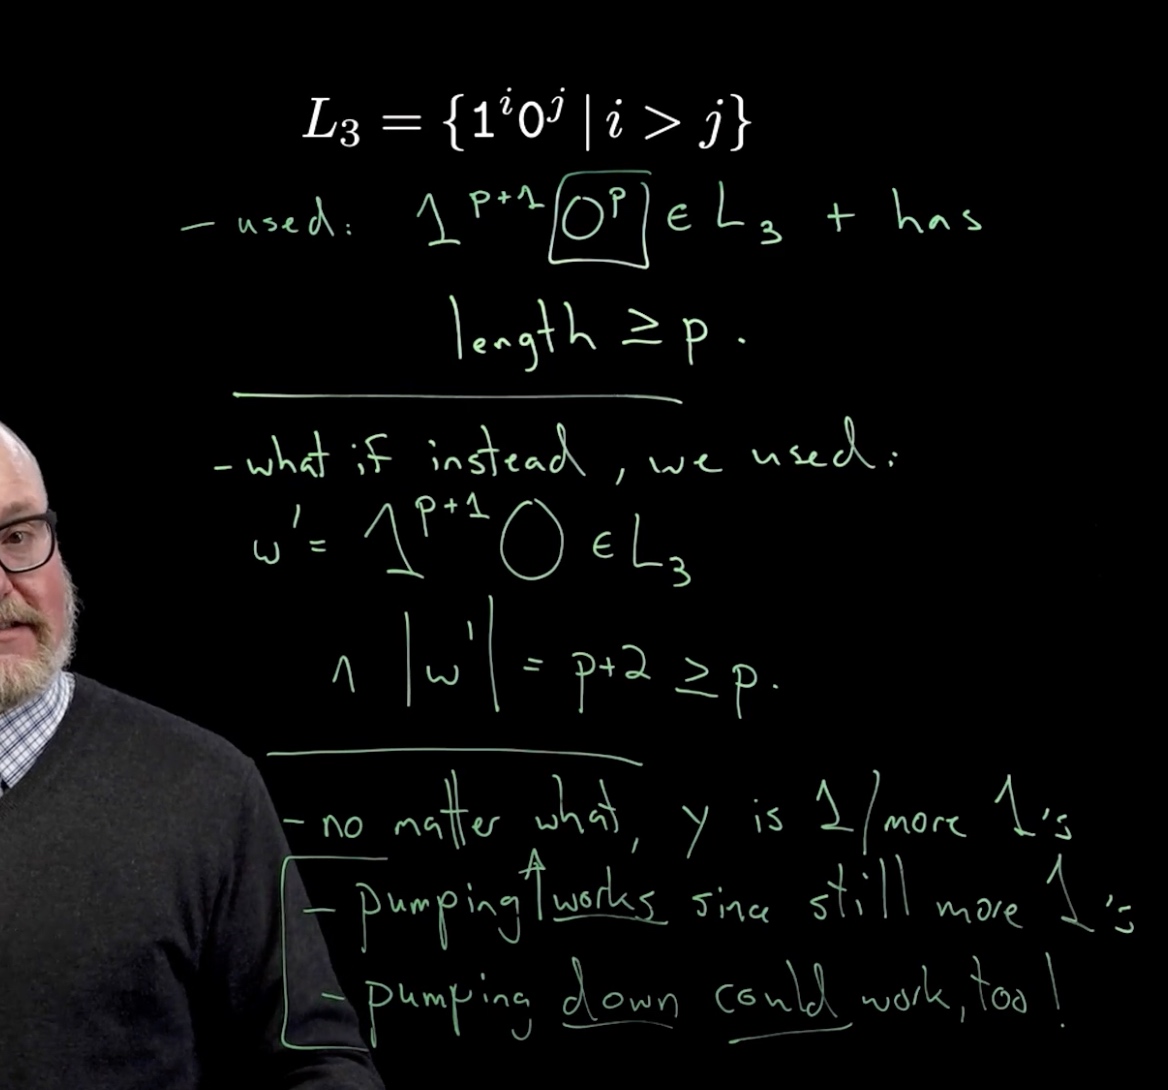 L₃ = {1ⁱ0ʲ | i > j}
- used: 1^{p+1} 0^p ∈ L₃ + has
length ≥ p.
- what if instead, we used:
w' = 1^{p+1} 0 ∈ L₃
∧ |w'| = p+2 ≥ p.
- no matter what, y is 1/more 1's
- pumping ↑ works since still more 1's
- pumping down could work, too!